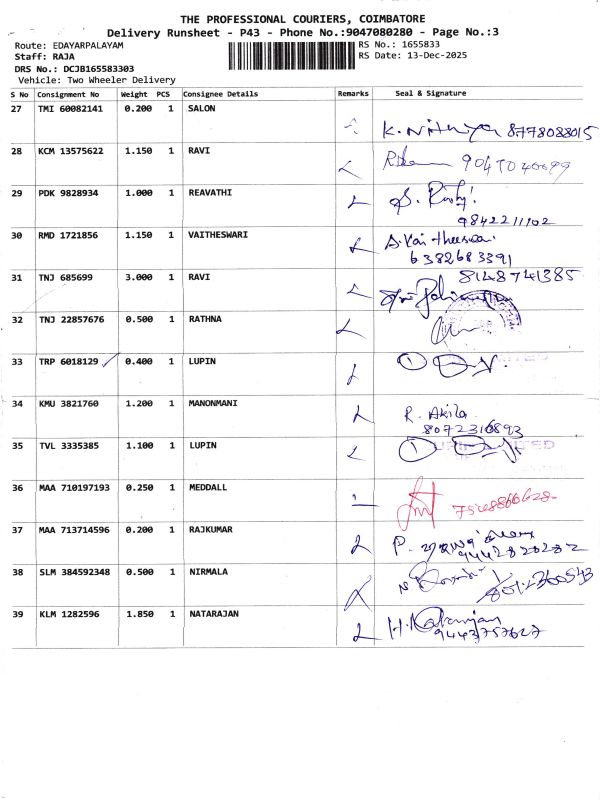 THE PROFESSIONAL COURIERS, COIMBATORE
Delivery Runsheet - P43 - Phone No.:9047080280 - Page No.:3
Route: EDAYARPALAYAM
RS No.: 1655833
Staff: RAJA
RS Date: 13-Dec-2025
DRS No.: DCJB165583303
Vehicle: Two Wheeler Delivery
S No Consignment No Weight PCS Consignee Details Remarks Seal & Signature
27 TMI 60082141 0.200 1 SALON
K. Nithya 8778088015
28 KCM 13575622 1.150 1 RAVI
29 PDK 9828934 1.000 1 REAVATHI
S.
9842211102
30 RMD 1721856 1.150 1 VAITHESWARI
A. Vaitheeswari
6382683391
31 TNJ 685699 3.000 1 RAVI
8148741385
32 TNJ 22857676 0.500 1 RATHNA
33 TRP 6018129 0.400 1 LUPIN
1
34 KMU 3821760 1.200 1 MANONMANI
R. Akila
8072316893
35 TVL 3335385 1.100 1 LUPIN
1
36 MAA 710197193 0.250 1 MEDDALL
37 MAA 713714596 0.200 1 RAJKUMAR
P.
9442820282
38 SLM 384592348 0.500 1 NIRMALA
8012360543
39 KLM 1282596 1.850 1 NATARAJAN
H.
9443757627